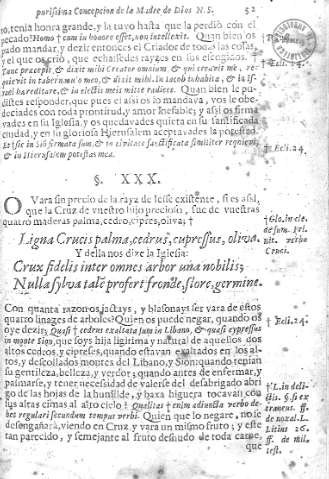 purissima Concepcion de la Madre de Dios N.S. 52
ro, tenia honra grande, y la tuvo hasta que la perdiò con el
pecado: Homo † cum in honore esset, non intellexit. Quan bien os
pudo mandar, y dezir entonces el Criador de todas las cosas,
y el que os criò, que echassedes rayzes en sus escogidos:
Tunc præcepit, & dixit mihi Creator omnium: & qui creavit me, re-
quievit in tabernaculo meo, & dixit mihi. In Iacob inhabita, & in Is-
rael hæreditare, & in electis meis mitte radices. Quan bien le pu-
distes responder, que pues el assi os lo mandava, vos le obe-
deciades con toda prontitud, y amor inefable; y assi os firma-
vades en su Iglesia, y os quedavades quieta en su santificada
ciudad, y en su gloriosa Hierusalem aceptavades la potestad.
Et sic in Sio firmata sum, & in civitate sanctificata similiter requievi,
& in Hierusalem potestas mea.
Ecli.24.
§. XXX.
O Vara sin precio de la raya de Iesse existente, si es assi,
que la Cruz de vuestro hijo precioso, fue de vuestras
quatro maderas palma, cedro, cipres, oliva; †
Ligna Crucis palma, cedrus, cupressus, oliva.
Y della nos dize la Iglesia:
Crux fidelis inter omnes arbor una nobilis;
Nulla sylva talē profert fronde, flore, germine.
† Glo. in cle.
de sum. Tri
nit. verbo
Cruci.
Con quanta razon os jactays, y blasonays ser vara de estos
quatro linages de arboles? Quien os puede negar, quando os
oye dezir; Quasi † cedrus exaltata sum in Libano, & quasi cypressus
in monte Sion, que soys hija ligitima y natural de aquellos dos
altos cedros, y cipreses, quando estavan en
los al-
tos, y descollados montes del Libano, y Sion; quando tenian
su gentileza, belleza, y verdor; quando antes de enfermar, y
palmarse, y tener necesidad de valerse del desabrigado abri
go de las hojas de la humilde, y baxa higuera tocavan con
sus altas cimas al alto cielo? Qualitas † enim adiecta verbo de-
bet regulari secundum tempus verbi. Quien que lo negare, no se
desengañara, viendo en Cruz, y vara un mismo fruto; y este
tan parecido, y semejante al fruto desnudo de toda carne,
que
† Ecli.24.
† L. in deli-
ctis. §. si ex
traneus. ff.
de noxal. L.
Titius 26.
ff. de mil.
test.